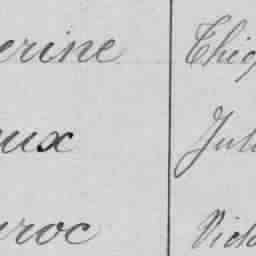 erine Thig
eux Juli
uroc Victo